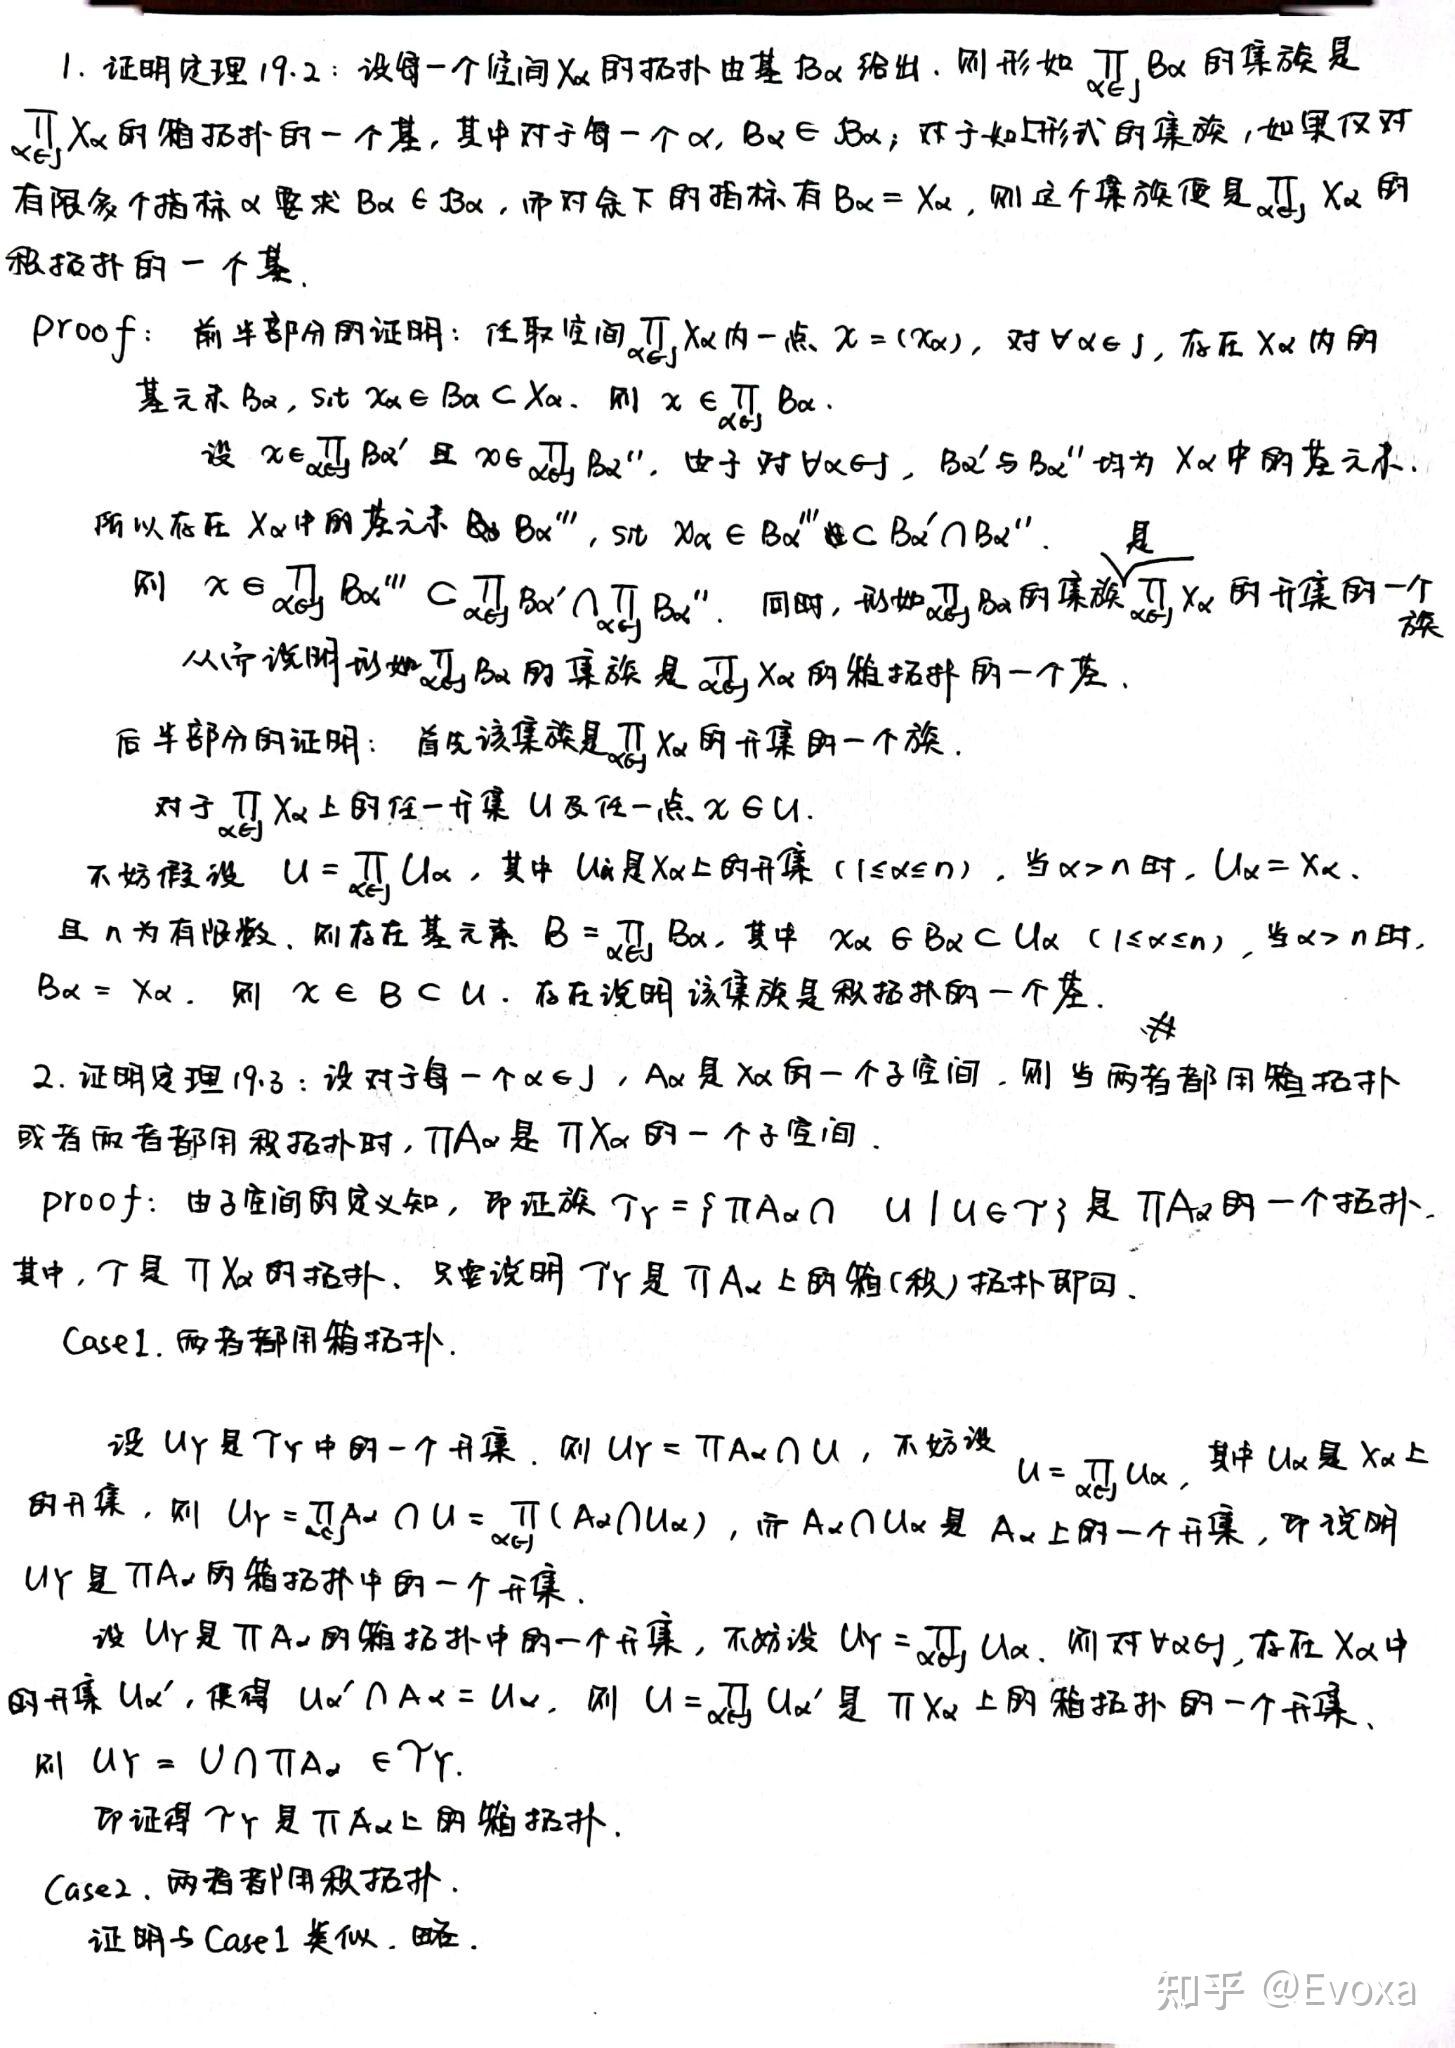 1. 证明定理19.2：设每一个空间Xα的拓扑由基ℬα给出. 则形如 ∏_{α∈J} Bα 的集族是
∏_{α∈J} Xα 的箱拓扑的一个基, 其中对于每一个α, Bα ∈ ℬα; 对于如上形式的集族, 如果仅对
有限多个指标 α 要求 Bα ∈ ℬα, 而对余下的指标有 Bα = Xα, 则这个集族便是 ∏_{α∈J} Xα 的
积拓扑的一个基.
proof: 前半部分的证明: 任取空间 ∏_{α∈J} Xα 内一点 x = (xα), 对∀α∈J, 存在 Xα 内的
基元素 Bα, s.t xα ∈ Bα ⊂ Xα. 则 x ∈ ∏_{α∈J} Bα.
设 x∈∏_{α∈J} Bα′ 且 x∈∏_{α∈J} Bα″. 由于对∀α∈J, Bα′与Bα″均为 Xα中的基元素.
所以存在 Xα中的基元素 Bα‴, s.t xα ∈ Bα‴ ⊂ Bα′∩Bα″.
则 x ∈ ∏_{α∈J} Bα‴ ⊂ ∏_{α∈J} Bα′ ∩ ∏_{α∈J} Bα″. 同时, 形如∏_{α∈J} Bα的集族是∏_{α∈J} Xα 的开集的一个族
从而说明形如∏_{α∈J} Bα 的集族是 ∏_{α∈J} Xα 的箱拓扑的一个基.
后半部分的证明: 首先该集族是∏_{α∈J} Xα 的开集的一个族.
对于 ∏_{α∈J} Xα 上的任一开集 U 及任一点 x ∈ U.
不妨假设 U = ∏_{α∈J} Uα, 其中 Uα是Xα上的开集 (1≤α≤n), 当α>n时, Uα = Xα.
且 n为有限数. 则存在基元素 B = ∏_{α∈J} Bα, 其中 xα ∈ Bα ⊂ Uα (1≤α≤n), 当α>n时,
Bα = Xα. 则 x ∈ B ⊂ U. 存在说明该集族是积拓扑的一个基.
#
2. 证明定理19.3: 设对于每一个α∈J, Aα是Xα的一个子空间. 则当两者都用箱拓扑
或者两者都用积拓扑时, πAα是 πXα 的一个子空间.
proof: 由子空间的定义知, 即证族 τY = {πAα∩ U | U∈τ} 是 πAα的一个拓扑.
其中, τ是 πXα的拓扑. 只要说明 τY是 πAα上的箱(积)拓扑即可.
Case1. 两者都用箱拓扑.
设 UY是τY中的一个开集. 则 UY = πAα∩U, 不妨设 U = ∏_{α∈J} Uα, 其中 Uα是 Xα上
的开集, 则 UY = ∏_{α∈J} Aα ∩ U = ∏_{α∈J} (Aα∩Uα), 而 Aα∩Uα是 Aα上的一个开集, 即说明
UY是πAα的箱拓扑中的一个开集.
设 UY是 πAα的箱拓扑中的一个开集, 不妨设 UY = ∏_{α∈J} Uα. 则对∀α∈J, 存在 Xα中
的开集 Uα′, 使得 Uα′∩Aα = Uα. 则 U = ∏_{α∈J} Uα′是 πXα上的箱拓扑的一个开集.
则 UY = U∩πAα ∈τY.
即证得 τY是πAα上的箱拓扑.
Case2. 两者都用积拓扑.
证明与Case1类似. 略.
知乎 @Evoxa